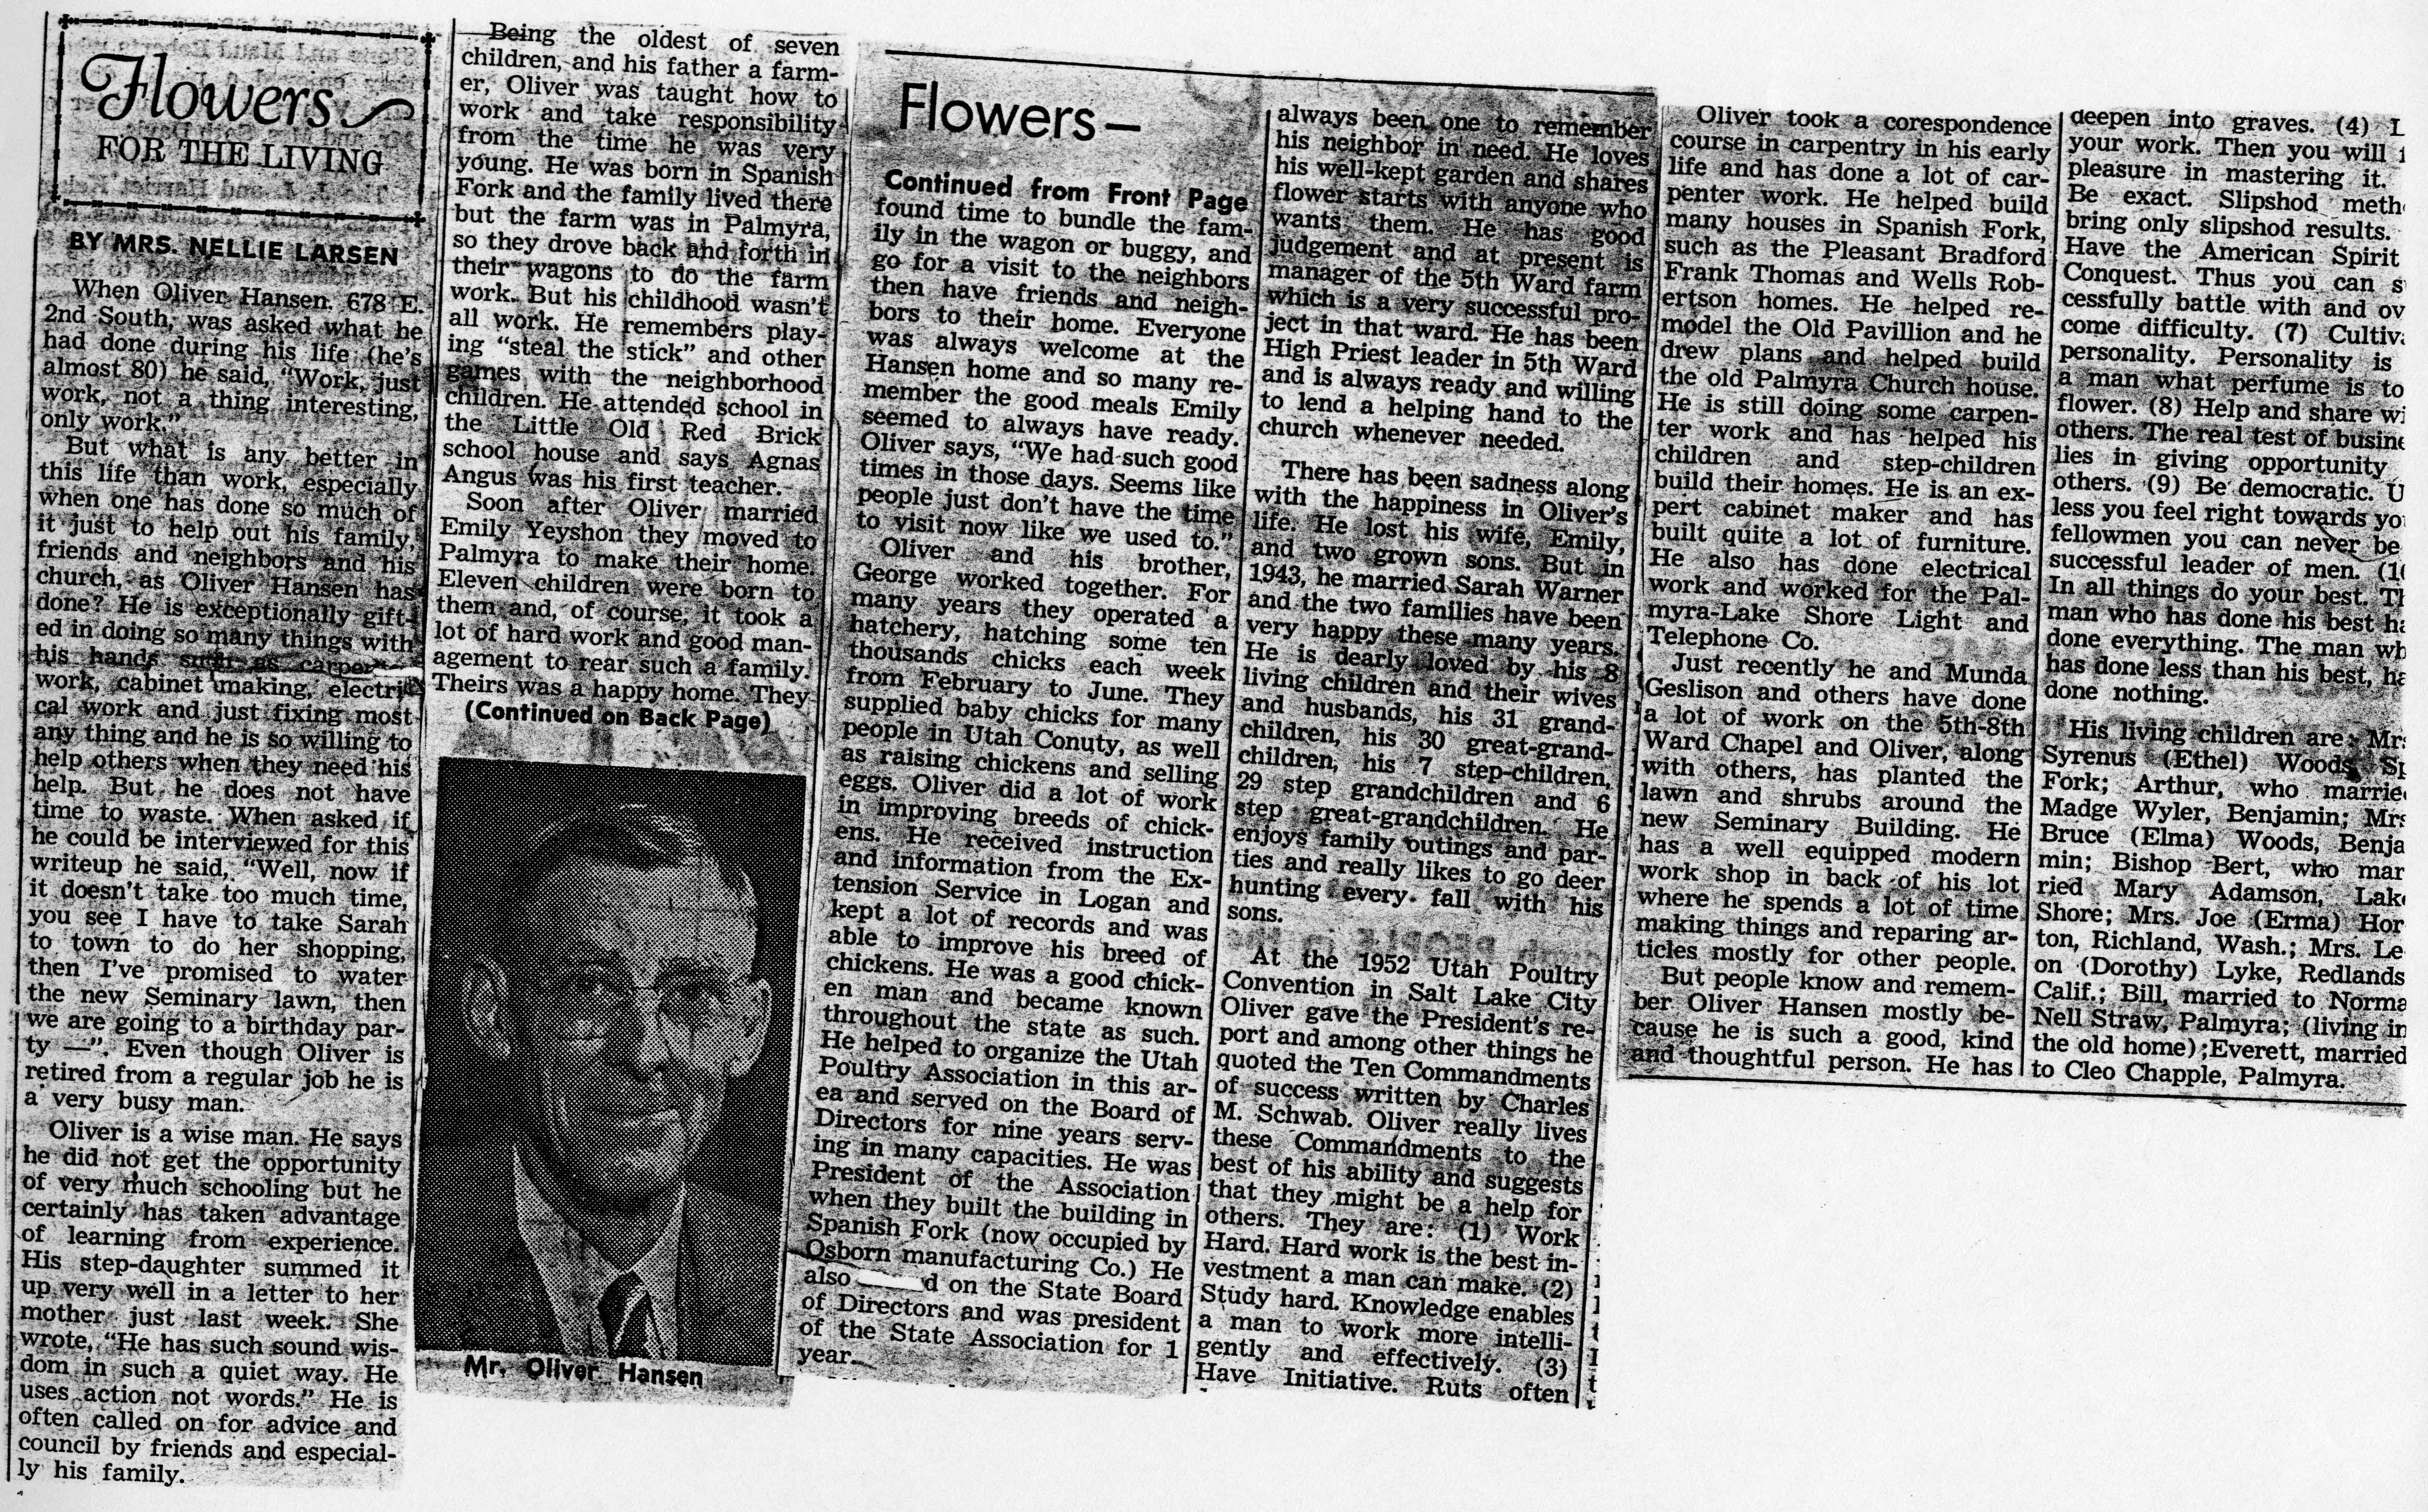 Flowers
FOR THE LIVING
BY MRS. NELLIE LARSEN
When Oliver Hansen. 678 E.
2nd South, was asked what he
had done during his life (he's
almost 80) he said, "Work, just
work, not a thing interesting,
only work."
But what is any better in
this life than work, especially
when one has done so much of
it just to help out his family,
friends and neighbors and his
church, as Oliver Hansen has
done? He is exceptionally gift-
ed in doing so many things with
his hands such as carpen
work, cabinet making, electri-
cal work and just fixing most
any thing and he is so willing to
help others when they need his
help. But he does not have
time to waste. When asked if
he could be interviewed for this
writeup he said, "Well, now if
it doesn't take too much time,
you see I have to take Sarah
to town to do her shopping,
then I've promised to water
the new Seminary lawn, then
we are going to a birthday par-
ty —". Even though Oliver is
retired from a regular job he is
a very busy man.
Oliver is a wise man. He says
he did not get the opportunity
of very much schooling but he
certainly has taken advantage
of learning from experience.
His step-daughter summed it
up very well in a letter to her
mother just last week. She
wrote, "He has such sound wis-
dom in such a quiet way. He
uses action not words." He is
often called on for advice and
council by friends and especial-
ly his family.
Being the oldest of seven
children, and his father a farm-
er, Oliver was taught how to
work and take responsibility
from the time he was very
young. He was born in Spanish
Fork and the family lived there
but the farm was in Palmyra,
so they drove back and forth in
their wagons to do the farm
work. But his childhood wasn't
all work. He remembers play-
ing "steal the stick" and other
games with the neighborhood
children. He attended school in
the Little Old Red Brick
school house and says Agnas
Angus was his first teacher.
Soon after Oliver married
Emily Yeyshon they moved to
Palmyra to make their home.
Eleven children were born to
them and, of course, it took a
lot of hard work and good man-
agement to rear such a family.
Theirs was a happy home. They
(Continued on Back Page)
Mr. Oliver Hansen
Flowers—
Continued from Front Page
found time to bundle the fam-
ily in the wagon or buggy, and
go for a visit to the neighbors
then have friends and neigh-
bors to their home. Everyone
was always welcome at the
Hansen home and so many re-
member the good meals Emily
seemed to always have ready.
Oliver says, "We had such good
times in those days. Seems like
people just don't have the time
to visit now like we used to."
Oliver and his brother,
George worked together. For
many years they operated a
hatchery, hatching some ten
thousands chicks each week
from February to June. They
supplied baby chicks for many
people in Utah Conuty, as well
as raising chickens and selling
eggs. Oliver did a lot of work
in improving breeds of chick-
ens. He received instruction
and information from the Ex-
tension Service in Logan and
kept a lot of records and was
able to improve his breed of
chickens. He was a good chick-
en man and became known
throughout the state as such.
He helped to organize the Utah
Poultry Association in this ar-
ea and served on the Board of
Directors for nine years serv-
ing in many capacities. He was
President of the Association
when they built the building in
Spanish Fork (now occupied by
Osborn manufacturing Co.) He
also d on the State Board
of Directors and was president
of the State Association for 1
year.
always been one to remember
his neighbor in need. He loves
his well-kept garden and shares
flower starts with anyone who
wants them. He has good
judgement and at present is
manager of the 5th Ward farm
which is a very successful pro-
ject in that ward. He has been
High Priest leader in 5th Ward
and is always ready and willing
to lend a helping hand to the
church whenever needed.
There has been sadness along
with the happiness in Oliver's
life. He lost his wife, Emily,
and two grown sons. But in
1943, he married Sarah Warner
and the two families have been
very happy these many years.
He is dearly loved by his 8
living children and their wives
and husbands, his 31 grand-
children, his 30 great-grand-
children, his 7 step-children,
29 step grandchildren and 6
step great-grandchildren. He
enjoys family outings and par-
ties and really likes to go deer
hunting every fall with his
sons.
At the 1952 Utah Poultry
Convention in Salt Lake City
Oliver gave the President's re-
port and among other things he
quoted the Ten Commandments
of success written by Charles
M. Schwab. Oliver really lives
these Commandments to the
best of his ability and suggests
that they might be a help for
others. They are: (1) Work
Hard. Hard work is the best in-
vestment a man can make. (2)
Study hard. Knowledge enables
a man to work more intelli-
gently and effectively. (3)
Have Initiative. Ruts often
Oliver took a corespondence
course in carpentry in his early
life and has done a lot of car-
penter work. He helped build
many houses in Spanish Fork,
such as the Pleasant Bradford
Frank Thomas and Wells Rob-
ertson homes. He helped re-
model the Old Pavillion and he
drew plans and helped build
the old Palmyra Church house.
He is still doing some carpen-
ter work and has helped his
children and step-children
build their homes. He is an ex-
pert cabinet maker and has
built quite a lot of furniture.
He also has done electrical
work and worked for the Pal-
myra-Lake Shore Light and
Telephone Co.
Just recently he and Munda
Geslison and others have done
a lot of work on the 5th-8th
Ward Chapel and Oliver, along
with others, has planted the
lawn and shrubs around the
new Seminary Building. He
has a well equipped modern
work shop in back of his lot
where he spends a lot of time
making things and reparing ar-
ticles mostly for other people.
But people know and remem-
ber Oliver Hansen mostly be-
cause he is such a good, kind
and thoughtful person. He has
deepen into graves. (4) L
your work. Then you will f
pleasure in mastering it.
Be exact. Slipshod meth
bring only slipshod results.
Have the American Spirit
Conquest. Thus you can s
cessfully battle with and ov
come difficulty. (7) Cultiv
personality. Personality is
a man what perfume is to
flower. (8) Help and share wi
others. The real test of busine
lies in giving opportunity
others. (9) Be democratic. U
less you feel right towards yo
fellowmen you can never be
successful leader of men. (1
In all things do your best. Th
man who has done his best ha
done everything. The man wh
has done less than his best, ha
done nothing.
His living children are: Mrs
Syrenus (Ethel) Woods, Sp
Fork; Arthur, who marrie
Madge Wyler, Benjamin; Mrs
Bruce (Elma) Woods, Benja
min; Bishop Bert, who mar
ried Mary Adamson, Lake
Shore; Mrs. Joe (Erma) Hor
ton, Richland, Wash.; Mrs. Le
on (Dorothy) Lyke, Redlands
Calif.; Bill, married to Norma
Nell Straw, Palmyra; (living in
the old home);Everett, married
to Cleo Chapple, Palmyra.